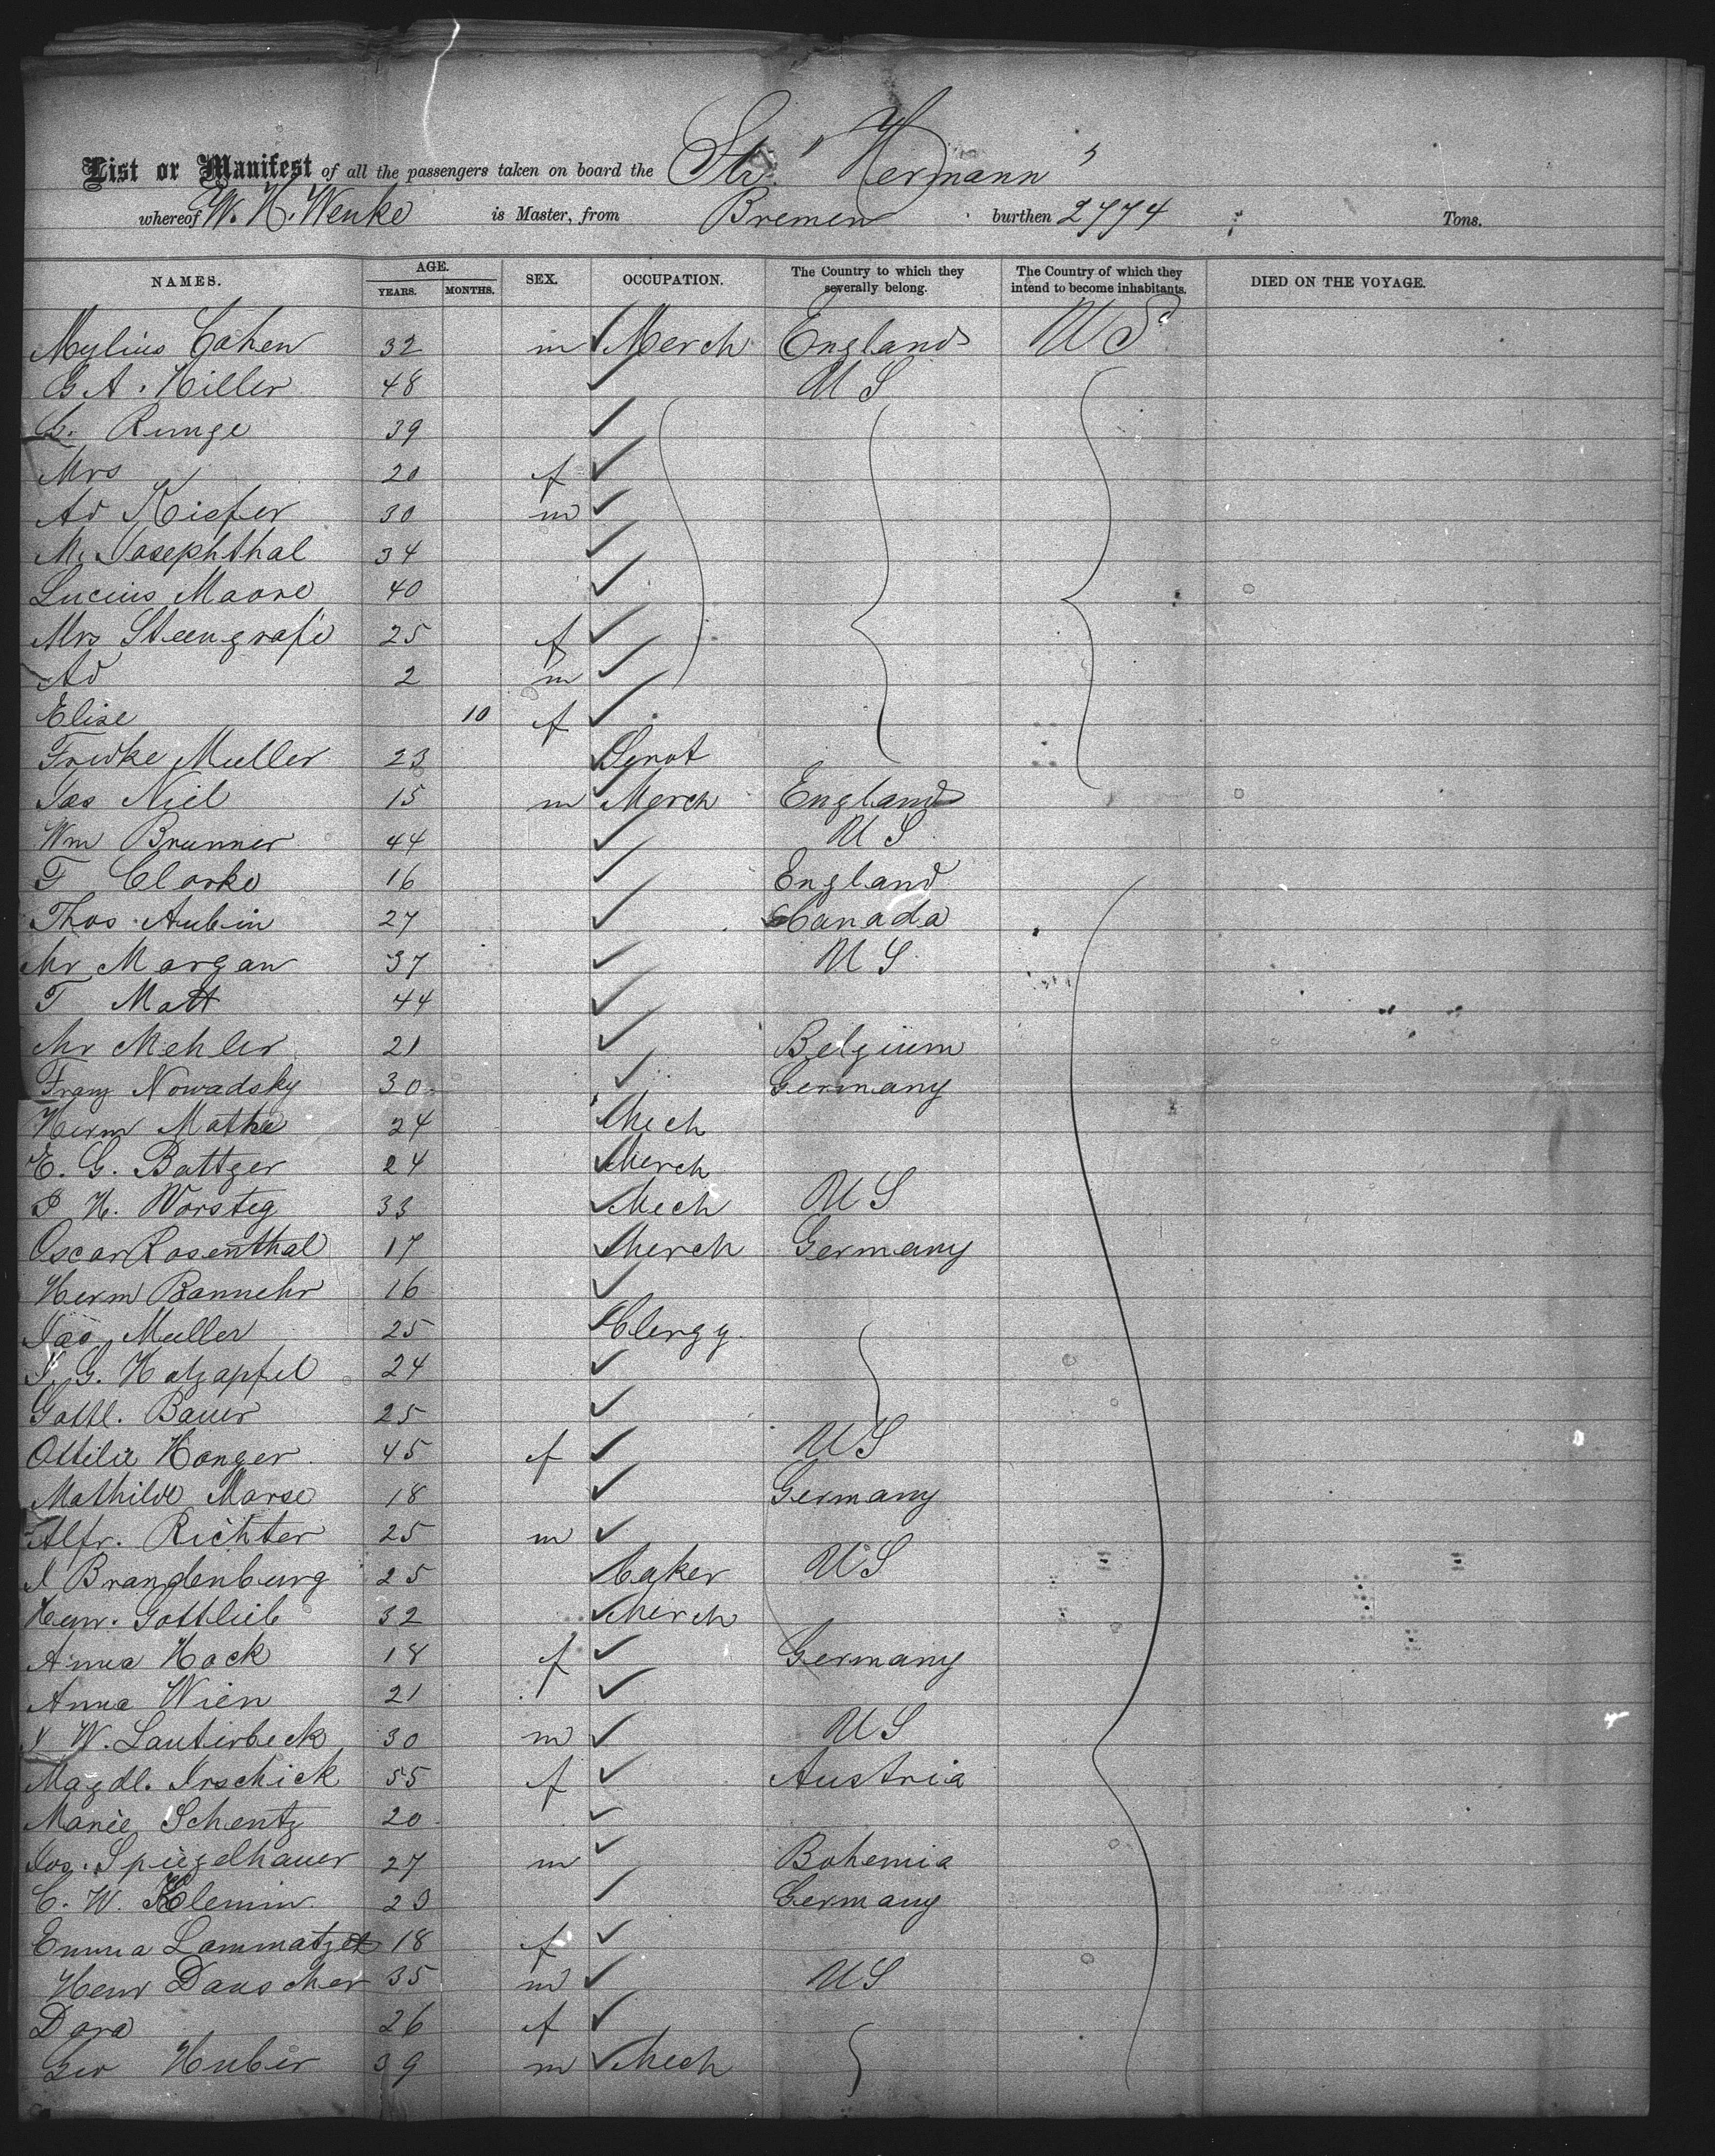 List or Manifest of all the passengers taken on board the Str. "Hermann"
whereof W. H. Wenke is Master, from Bremen burthen 2774 Tons.
NAMES. AGE. YEARS. MONTHS. SEX. OCCUPATION. The Country to which they severally belong. The Country of which they intend to become inhabitants. DIED ON THE VOYAGE.
Mylius Cohen 32 m Merch England US
G A. Hiller 48 US
Runge 39
Mrs 20 f
Ad Kiefer 30 m
M. Josephthal 34
Lucius Moore 40
Mrs Steengrafe 25 f
Ad 2 m
Elise 10 f
Fredke Muller 23 Servt
Jas Niel 15 m Merch England
Wm Brunner 44 US
T Clarke 16 England
Thos Aubin 27 Canada
Mr Morgan 37 US
T Matt 44
Mr Mehler 21 Belgium
Franz Nowadsky 30 Germany
Herm Mathe 24 Mech
E. G. Battger 24 Merch
P H. Worsteg 33 Mech US
Oscar Rosenthal 17 Merch Germany
Herm Bannehr 16
Jac Muller 25 Clergy
J. G. Holzapfel 24
Gottl. Bauer 25
Ottilie Honger 45 f US
Mathilde Marse 18 Germany
Alfr. Richter 25 m
J Brandenburg 25 Baker US
Henr. Gottlieb 32 Merch
Anna Hock 18 f Germany
Anna Wien 21
J W. Lauterbeck 30 m US
Magdl. Irschick 55 f Austria
Marie Schentz 20
Jos. Spiegelhauer 27 m Bohemia
C. W. Klemin 23 Germany
Emma Lommatzet 18 f
Henr Dauscher 35 m US
Dora 26 f
Geo Huber 39 m Mech